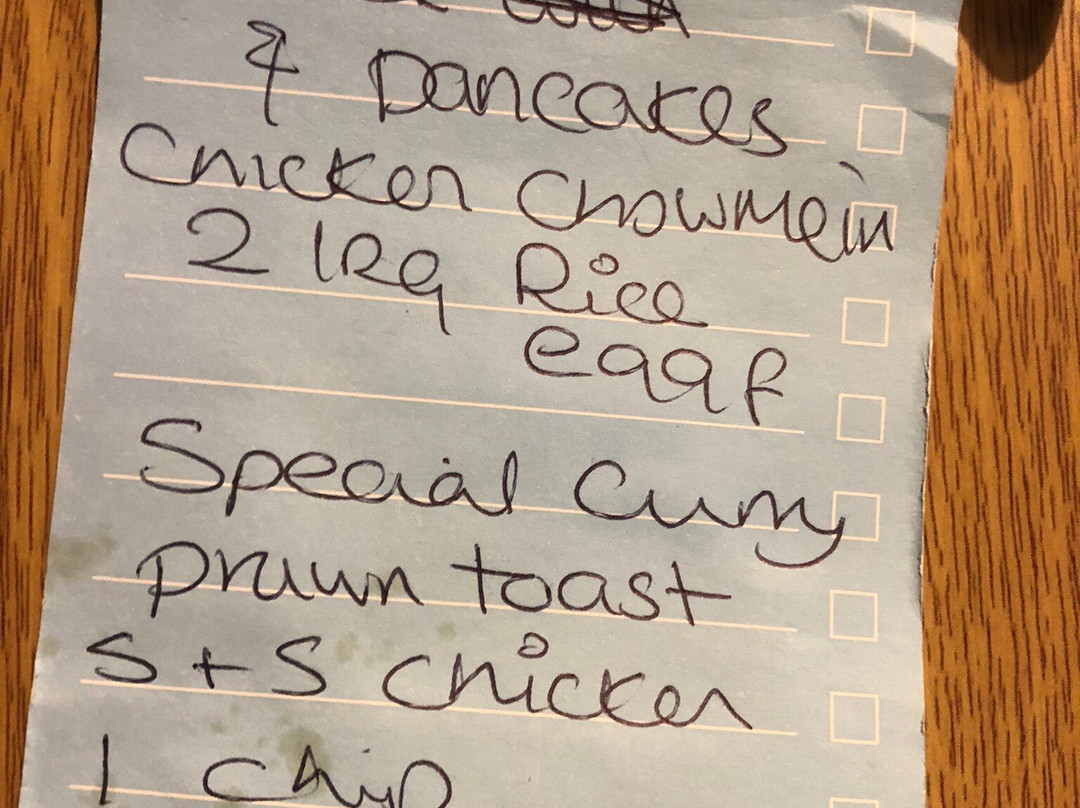 4 pancakes
Chicken Chowmein
2 lRg Rice
eggf
Special Curry
prawn toast
S + S chicken
1 chip